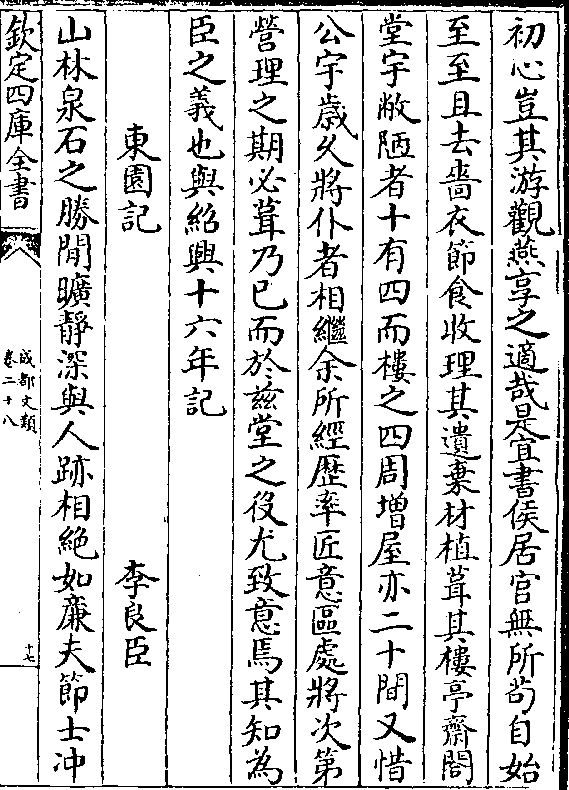 初心豈其游觀燕享之適哉是宜書侯居官無所茍自始
至至且去嗇衣節食收理其遺棄材植葺其樓亭齋閣
堂宇敝陋者十有四而樓之四周増屋亦二十間又惜
公宇歲久將仆者相繼余所經歴率匠意區處將次第
營理之期必葺乃已而於兹堂之役尤致意焉其知為
臣之義也與紹興十六年記
東園記　李良臣
山林泉石之勝閒曠靜深與人跡相絶如亷夫節士沖
欽定四庫全書
成都文類
卷二十八
十七